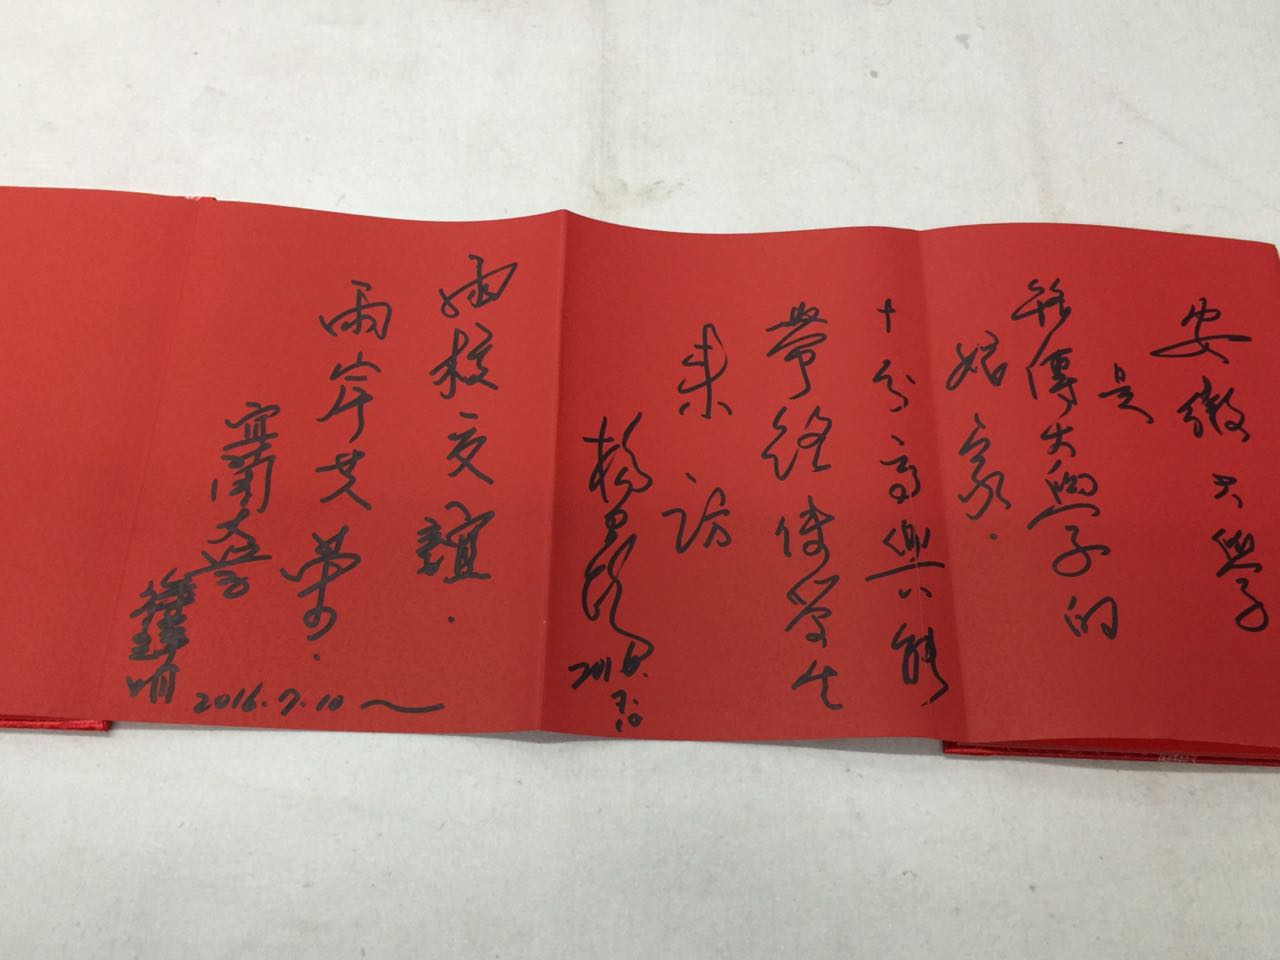 安徽大學
是
銘傳大學的
娘家.
十分高興能
帶銘傳學生
來訪
楊
2016.
7.
10
兩校交誼.
兩岸共榮.
宜蘭大學
明
2016.7.10